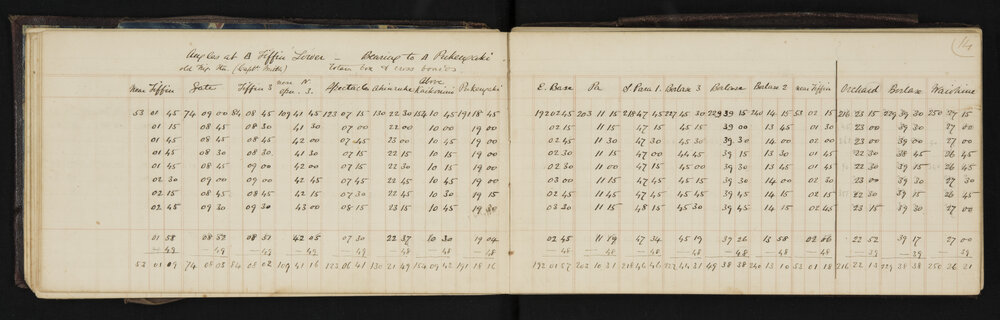 14
Angles at Δ Tiffin Lower — Bearing to Δ Pukengaki
old Trig Stn. (Capt. Smith)
near Tiffin Gate Tiffin 3 near N 3. Above Pukengaki E. Base Pa Borlase 3 Borlase Borlase 2 near Tiffin Orchard Borlase
53 01 45 74 09 00 84 08 45 109 41 45 123 07 15 130 22 30 154 10 45 191 18 45 192 02 45 203 11 15 218 47 45 227 45 30 229 39 15 240 14 15 53 02 15 216 23 15 229 39 30 250 27 15
01 15 08 45 08 30 41 30 07 00 22 00 10 00 19 00 02 15 10 45 47 15 45 15 39 00 13 45 01 30 23 00 39 30 27 00
01 45 08 45 08 45 42 00 07 45 23 00 10 45 19 00 02 45 11 30 47 30 45 30 39 30 14 00 02 00 23 00 39 00 27 00
01 45 08 30 08 30 41 30 07 15 22 15 10 15 19 00 02 30 11 15 47 00 44 45 39 15 13 30 01 45 22 30 38 45 26 45
01 45 08 45 09 00 42 00 07 15 22 30 10 15 19 00 02 30 11 00 47 15 45 00 39 30 13 45 01 45 22 30 39 15 26 45
02 30 09 00 09 00 42 45 07 45 22 45 10 45 19 00 03 00 11 15 47 45 45 15 39 30 14 00 02 30 23 00 39 30 27 30
02 15 08 45 08 45 42 15 07 30 22 45 10 30 19 15 02 45 11 45 47 45 45 15 39 45 14 15 02 15 22 30 39 15 26 45
02 45 09 30 09 30 43 00 08 15 23 15 10 45 19 30 03 30 11 15 48 15 45 30 39 45 14 15 02 45 23 15 39 30 27 00
01 58 08 52 08 51 42 05 07 30 22 37 10 30 19 04 02 45 11 19 47 34 45 19 39 26 13 58 02 06 22 52 39 17 27 00
— 49 — 49 — 49 — 49 — 49 — 48 — 48 — 48 — 48 — 48 — 48 — 48 — 48 — 48 — 48 — 39 — 39 — 39
53 01 09 74 08 03 84 08 02 109 41 16 123 06 41 130 21 49 154 09 42 191 18 16 192 01 57 203 10 31 218 46 46 227 44 31 229 38 38 240 13 10 53 01 18 216 22 13 229 38 38 250 26 21